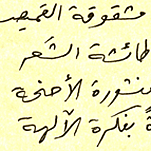 مشقوقة القميص
طائشة الشَعر
منشورة الأجنحة
بفكرة الآلهة